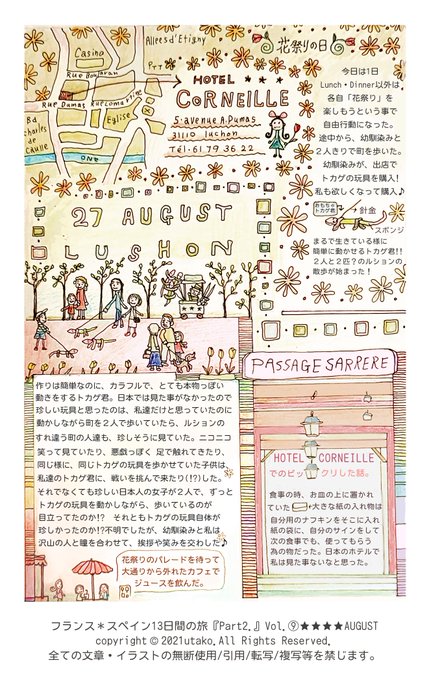 Casino
Allées d'Etigny
Rue Bonjaran
Rue Dumas
Rue Lamartine
Eglise
Bd
Charles
de
Gaulle
ONE
HOTEL ★★
CORNEILLE
5 avenue A.Dumas
31110 Luchon
Tél.61 79 36 22
花祭りの日
今日は1日
Lunch・Dinner以外は、
各自「花祭り」を
楽しもうという事で
自由行動になった。
途中から、幼馴染みと
2人きりで町を歩いた。
幼馴染みが、出店で
トカゲの玩具を購入!
私も欲しくなって購入♪
おもちゃ
トカゲ君
針金
スポンジ
まるで生きている様に
簡単に動かせるトカゲ君!!
2人と2匹?のルションの
散歩が始まった!
27 AUGUST
LUSHON
作りは簡単なのに、カラフルで、とても本物っぽい
動きをするトカゲ君。日本では見た事がなかったので
珍しい玩具と思ったのは、私達だけと思っていたのに
動かしながら町を2人で歩いていたら、ルションの
すれ違う町の人達も、珍しそうに見ていた。ニコニコ
笑って見ていたり、悪戯っぽく 足で触れてきたり、
同じ様に、同じトカゲの玩具を歩かせていた子供は、
私達のトカゲ君に、戦いを挑んで来たり(!?)した。
それでなくても珍しい日本人の女子が2人で、ずっと
トカゲの玩具を動かしながら、歩いているのが
目立ってたのか!? それともトカゲの玩具自体が
珍しかったのか!?不明でしたが、幼馴染みと私は、
沢山の人と瞳を合わせて、挨拶や笑みを交わした♪
花祭りのパレードを待って
大通りから外れたカフェで
ジュースを飲んだ。
PASSAGE SARRERE
HOTEL CORNEILLE
でのビックリした話。
食事の時、お皿の上に置かれ
ていた 大きな紙の入れ物は
自分用のナフキンをそこに入れ
紙の袋に、自分のサインをして
次の食事でも、使ってもらう
為の物だった。日本のホテルで
私は見た事ないなと思った。
フランス*スペイン13日間の旅『Part2.』Vol.⑨★★★★AUGUST
copyright©2021utako.All Rights Reserved.
全ての文章・イラストの無断使用/引用/転写/複写等を禁じます。